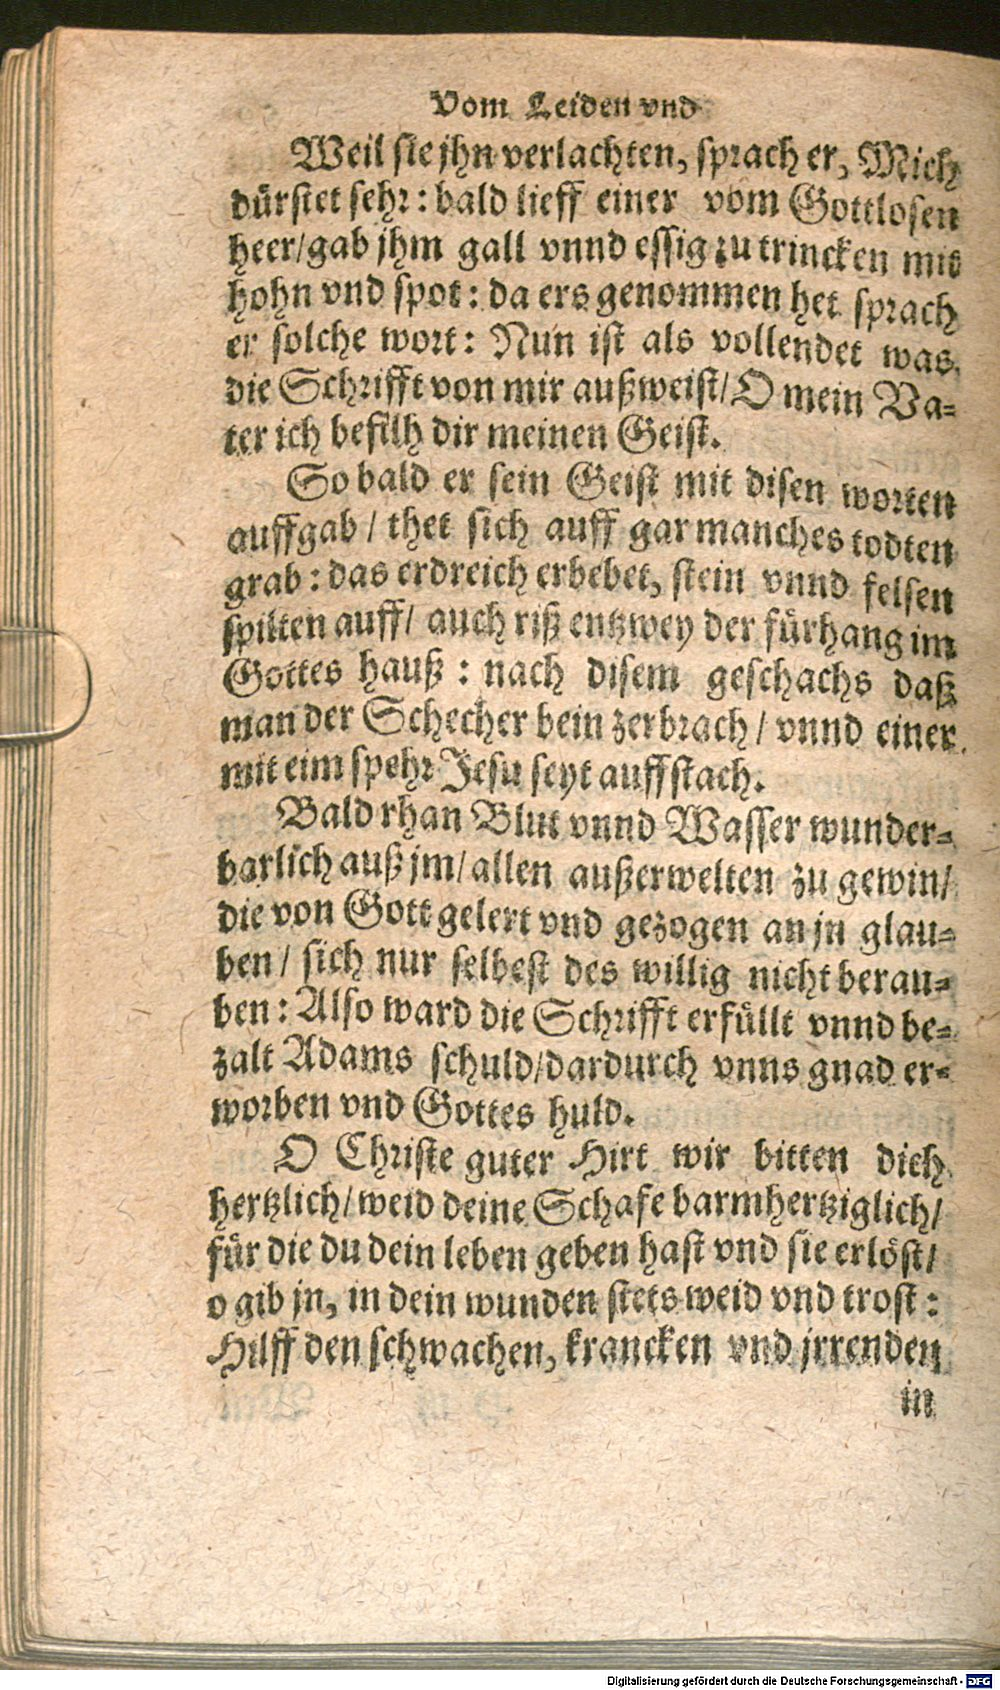 Vom Leiden vnd
Weil sie jhn verlachten, sprach er, Mich
dürstet sehr: bald lieff einer vom Gottlosen
heer/gab jhm gall vnnd essig zu trincken mit
hohn vnd spot: da ers genommen het sprach
er solche wort: Nun ist als vollendet was
die Schrifft von mir außweist/O mein Va-
ter ich befilh dir meinen Geist.
So bald er sein Geist mit disen worten
auffgab / thet sich auff gar manches todten
grab: das erdreich erbebet, stein vnnd felsen
spilten auff/ auch riß entzwey der fürhang im
Gottes hauß : nach disem geschachs daß
man der Schecher bein zerbrach / vnnd einer
mit eim spehr Jesu seyt auffstach.
Bald rhan Blut vnnd Wasser wunder-
barlich auß jm/ allen außerwelten zu gewin/
die von Gott gelert vnd gezogen an jn glau-
ben / sich nur selbest des willig nicht berau-
ben: Also ward die Schrifft erfüllt vnnd be-
zalt Adams schuld/dardurch vnns gnad er-
worben vnd Gottes huld.
O Christe guter Hirt wir bitten dich
hertzlich/ weid deine Schafe barmhertziglich/
für die du dein leben geben hast vnd sie erlöst/
o gib jn, in dein wunden stets weid vnd trost:
Hilff den schwachen, krancken vnd jrrenden
in
Digitalisierung gefördert durch die Deutsche Forschungsgemeinschaft - DFG